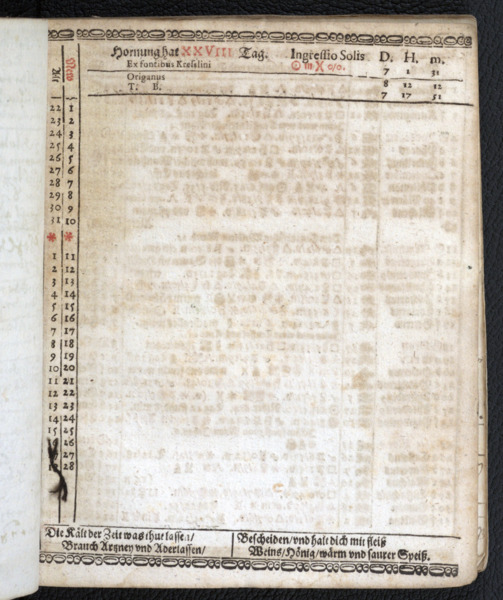 Hornung hat XXVIII Tag. Ingressio Solis D. H. m.
Ex fontibus Kreselini ☉ in X 0/0. 7 1 31
Origanus 8 12 12
T. B. 7 17 51
22 1
23 2
24 3
25 4
26 5
27 6
28 7
29 8
30 9
31 10
* *
1 11
2 12
3 13
4 14
5 15
6 16
7 17
8 18
9 19
10 20
11 21
12 22
13 23
14 24
15 25
26
27
28
Die Kält der Zeit was thut lasse.1/
Brauch Artzney vnd Aderlassen/
Bescheiden/vnd halt dich mit fleiß
Weins/Hönig/wärm vnd saurer Speiß.